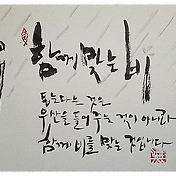 함께 맞는 비
돕는다는 것은
우산을 들어 주는 것이 아니라
함께 비를 맞는 것입니다